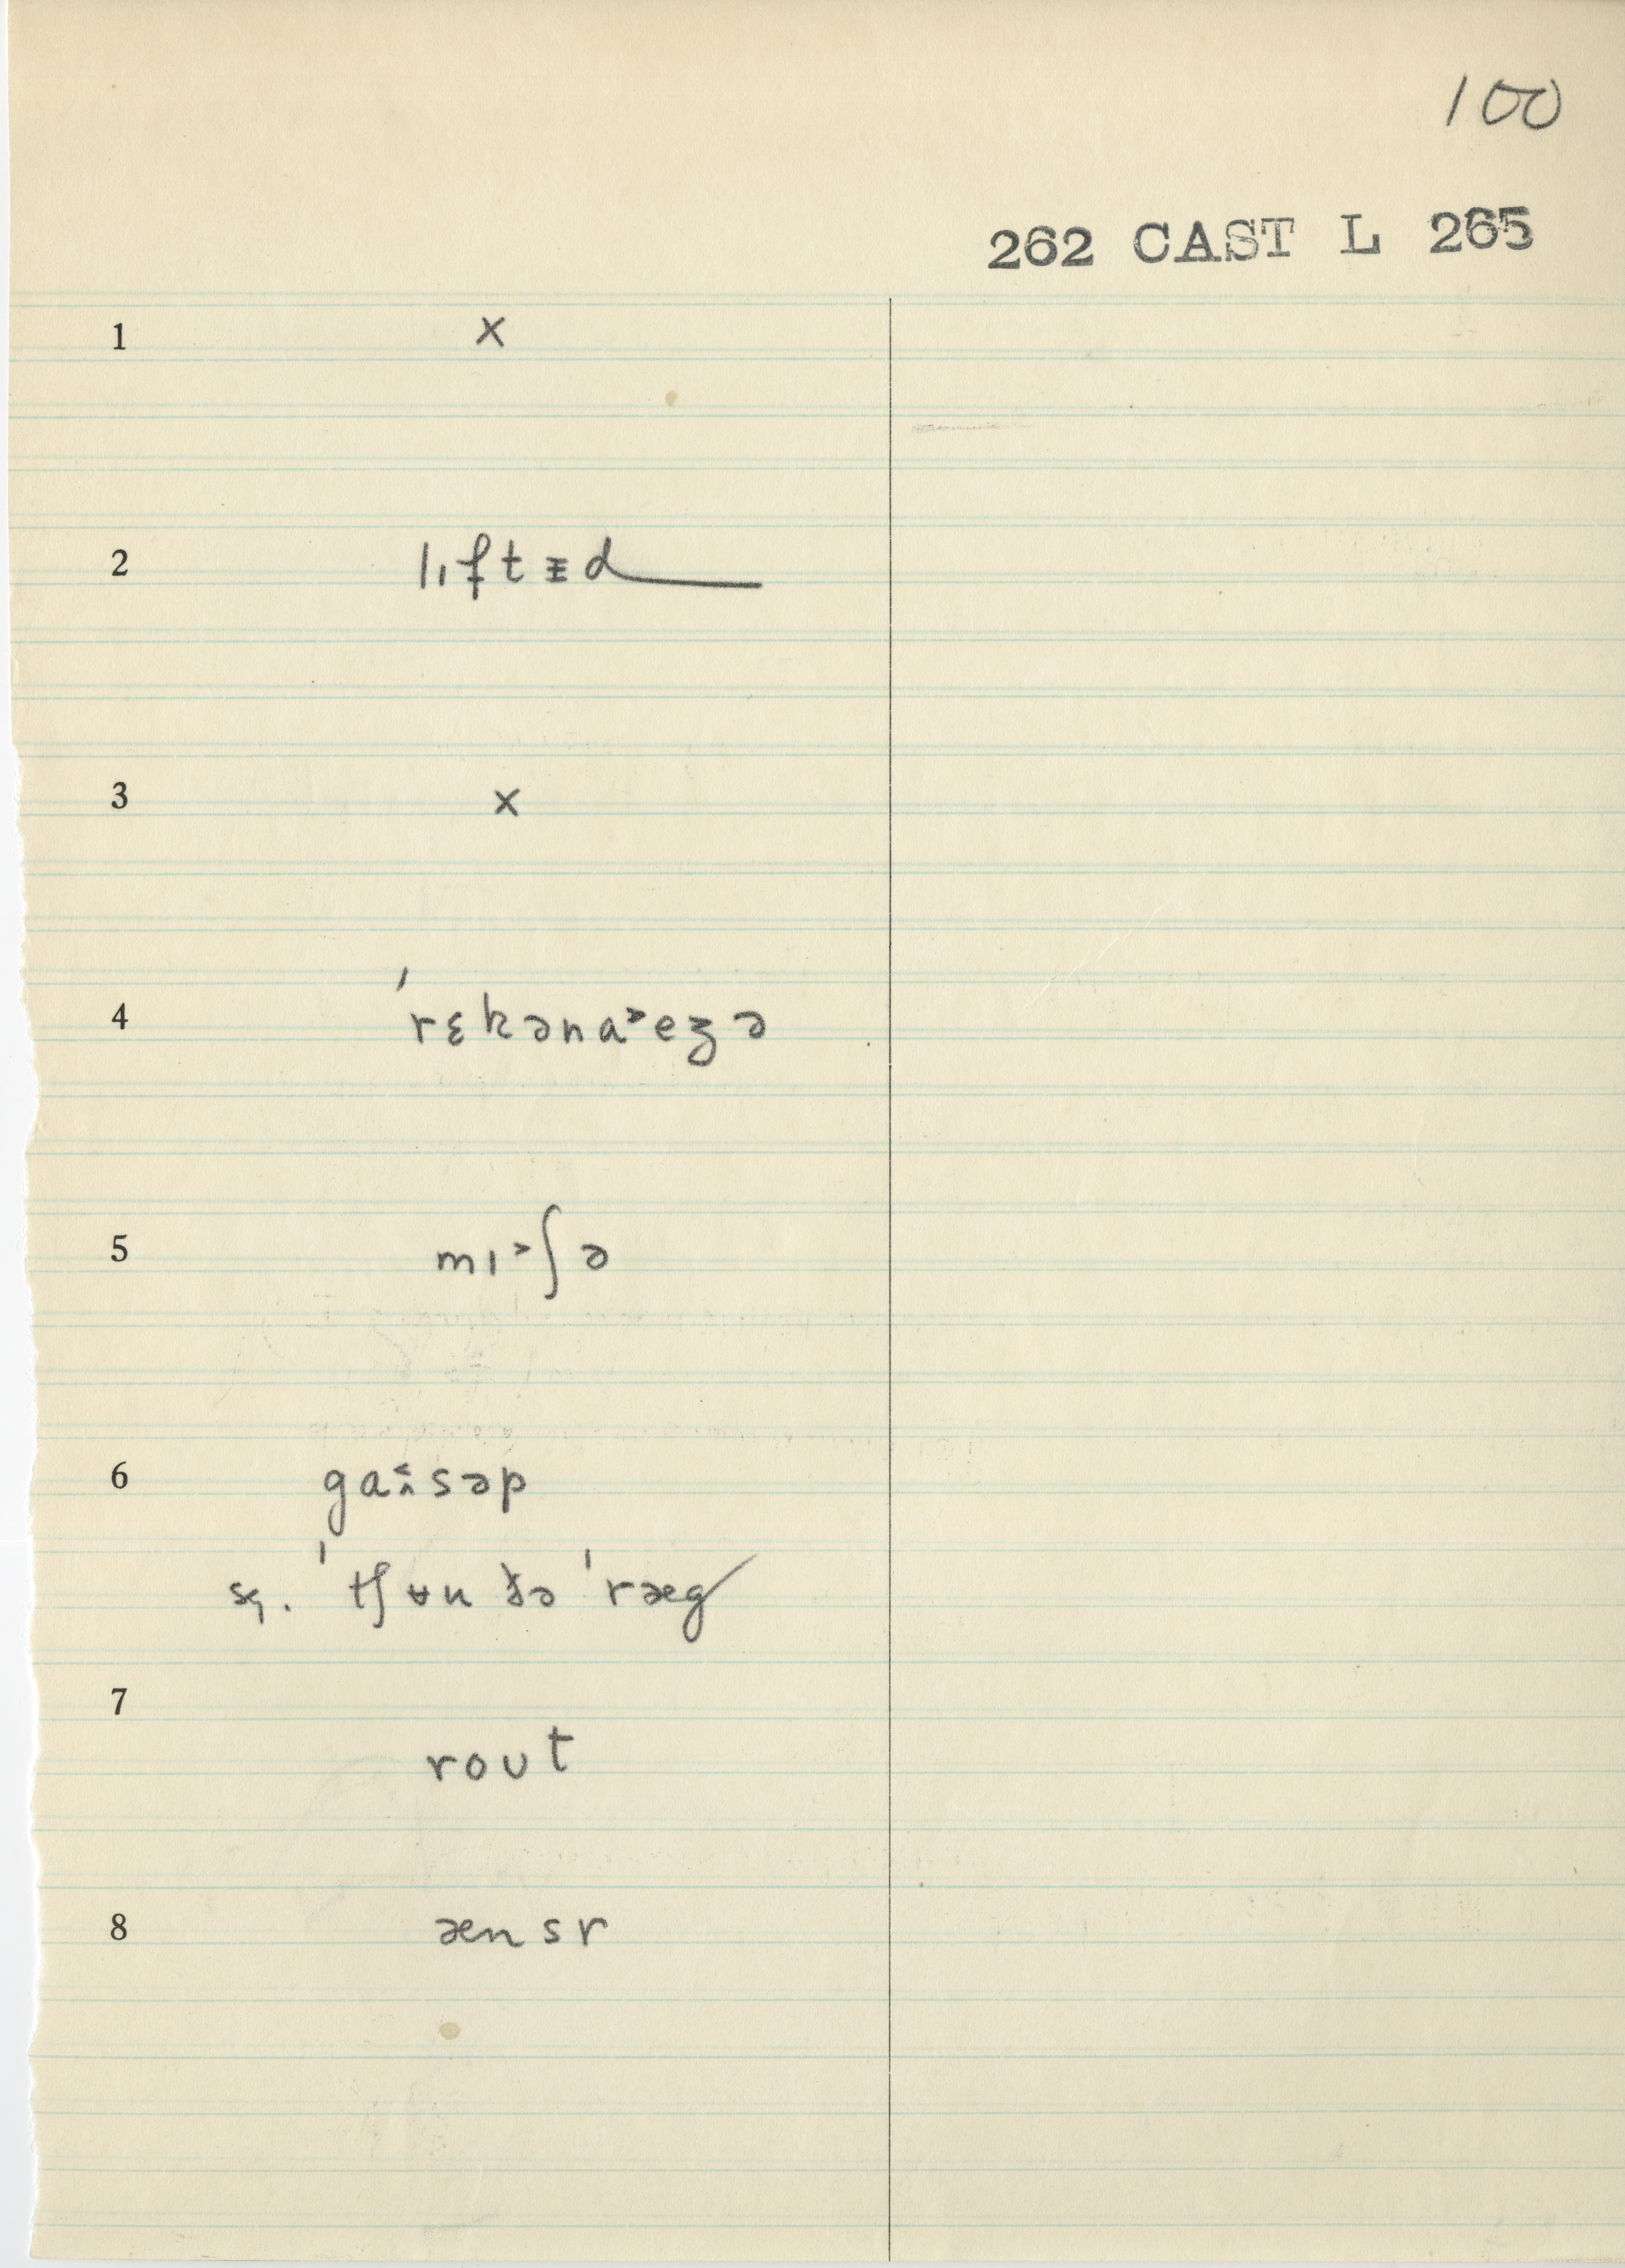 100
262 CAST L 265
1 x
2 lɪftᵻd
3 x
4 ˈrɛkəna˃ezə
5 mɪ˃ʃə
6 gaˑsəp
sq. ˈtʃʉu ðə ˈræg
7
roʊt
8 ænsr